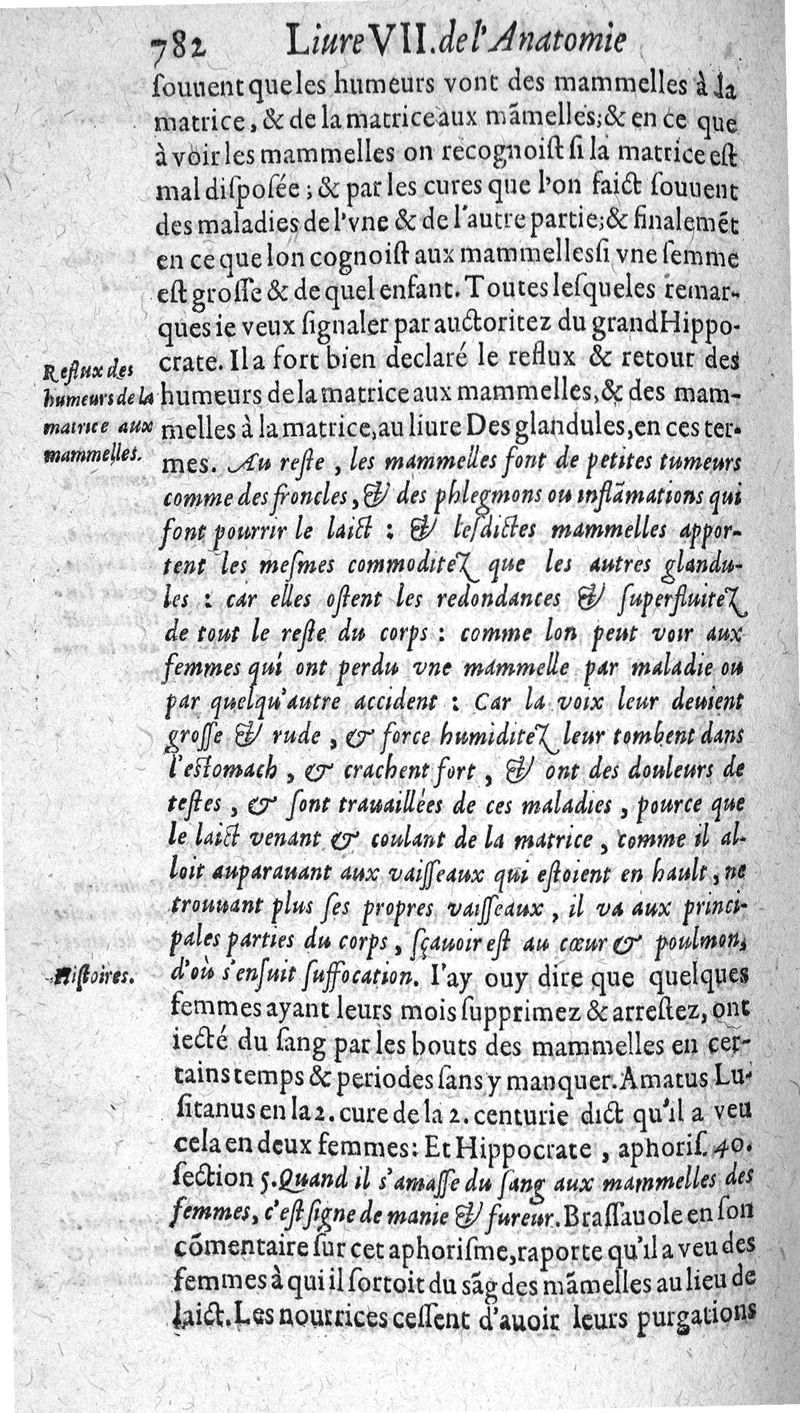 782 Liure VII. de l'Anatomie
ſouuent que les humeurs vont des mammelles à la
matrice, & de la matrice aux mãmelles; & en ce que
à voir les mammelles on recognoiſt ſi la matrice eſt
mal diſpoſée; & par les cures que l'on faict ſouuent
des maladies de l'vne & de l'autre partie; & finalemẽt
en ce que lon cognoiſt aux mammelles ſi vne femme
eſt groſſe & de quel enfant. Toutes leſqueles remar-
ques ie veux ſignaler par auctoritez du grand Hippo-
crate. Il a fort bien declaré le reflux & retour des
Reflux des
humeurs de la
matrice aux
mammelles.
humeurs de la matrice aux mammelles, & des mam-
melles à la matrice, au liure Des glandules, en ces ter-
mes. Au reſte, les mammelles font de petites tumeurs
comme des froncles, & des phlegmons ou inflãmations qui
font pourrir le laict : & leſdictes mammelles appor-
tent les meſmes commoditez que les autres glandu-
les : car elles oſtent les redondances & ſuperfluitez
de tout le reſte du corps : comme lon peut voir aux
femmes qui ont perdu vne mammelle par maladie ou
par quelqu'autre accident : Car la voix leur deuient
groſſe & rude, & force humiditez leur tombent dans
l'eſtomach, & crachent fort, & ont des douleurs de
teſtes, & ſont trauaillées de ces maladies, pource que
le laict venant & coulant de la matrice, comme il al-
loit auparauant aux vaiſſeaux qui eſtoient en hault, ne
trouuant plus ſes propres vaiſſeaux, il va aux princi-
pales parties du corps, ſçauoir eſt au cœur & poulmon,
Hiſtoires.
d'où s'enſuit ſuffocation. I'ay ouy dire que quelques
femmes ayant leurs mois ſupprimez & arreſtez, ont
iecté du ſang par les bouts des mammelles en cer-
tains temps & periodes ſans y manquer. Amatus Lu-
ſitanus en la 2. cure de la 2. centurie dict qu'il a veu
cela en deux femmes: Et Hippocrate, aphoriſ. 40.
ſection 5. Quand il s'amaſſe du ſang aux mammelles des
femmes, c'eſt ſigne de manie & fureur. Braſſauole en ſon
cõmentaire ſur cet aphoriſme, raporte qu'il a veu des
femmes à qui il ſortoit du ſãg des mãmelles au lieu de
laict. Les nourrices ceſſent d'auoir leurs purgations